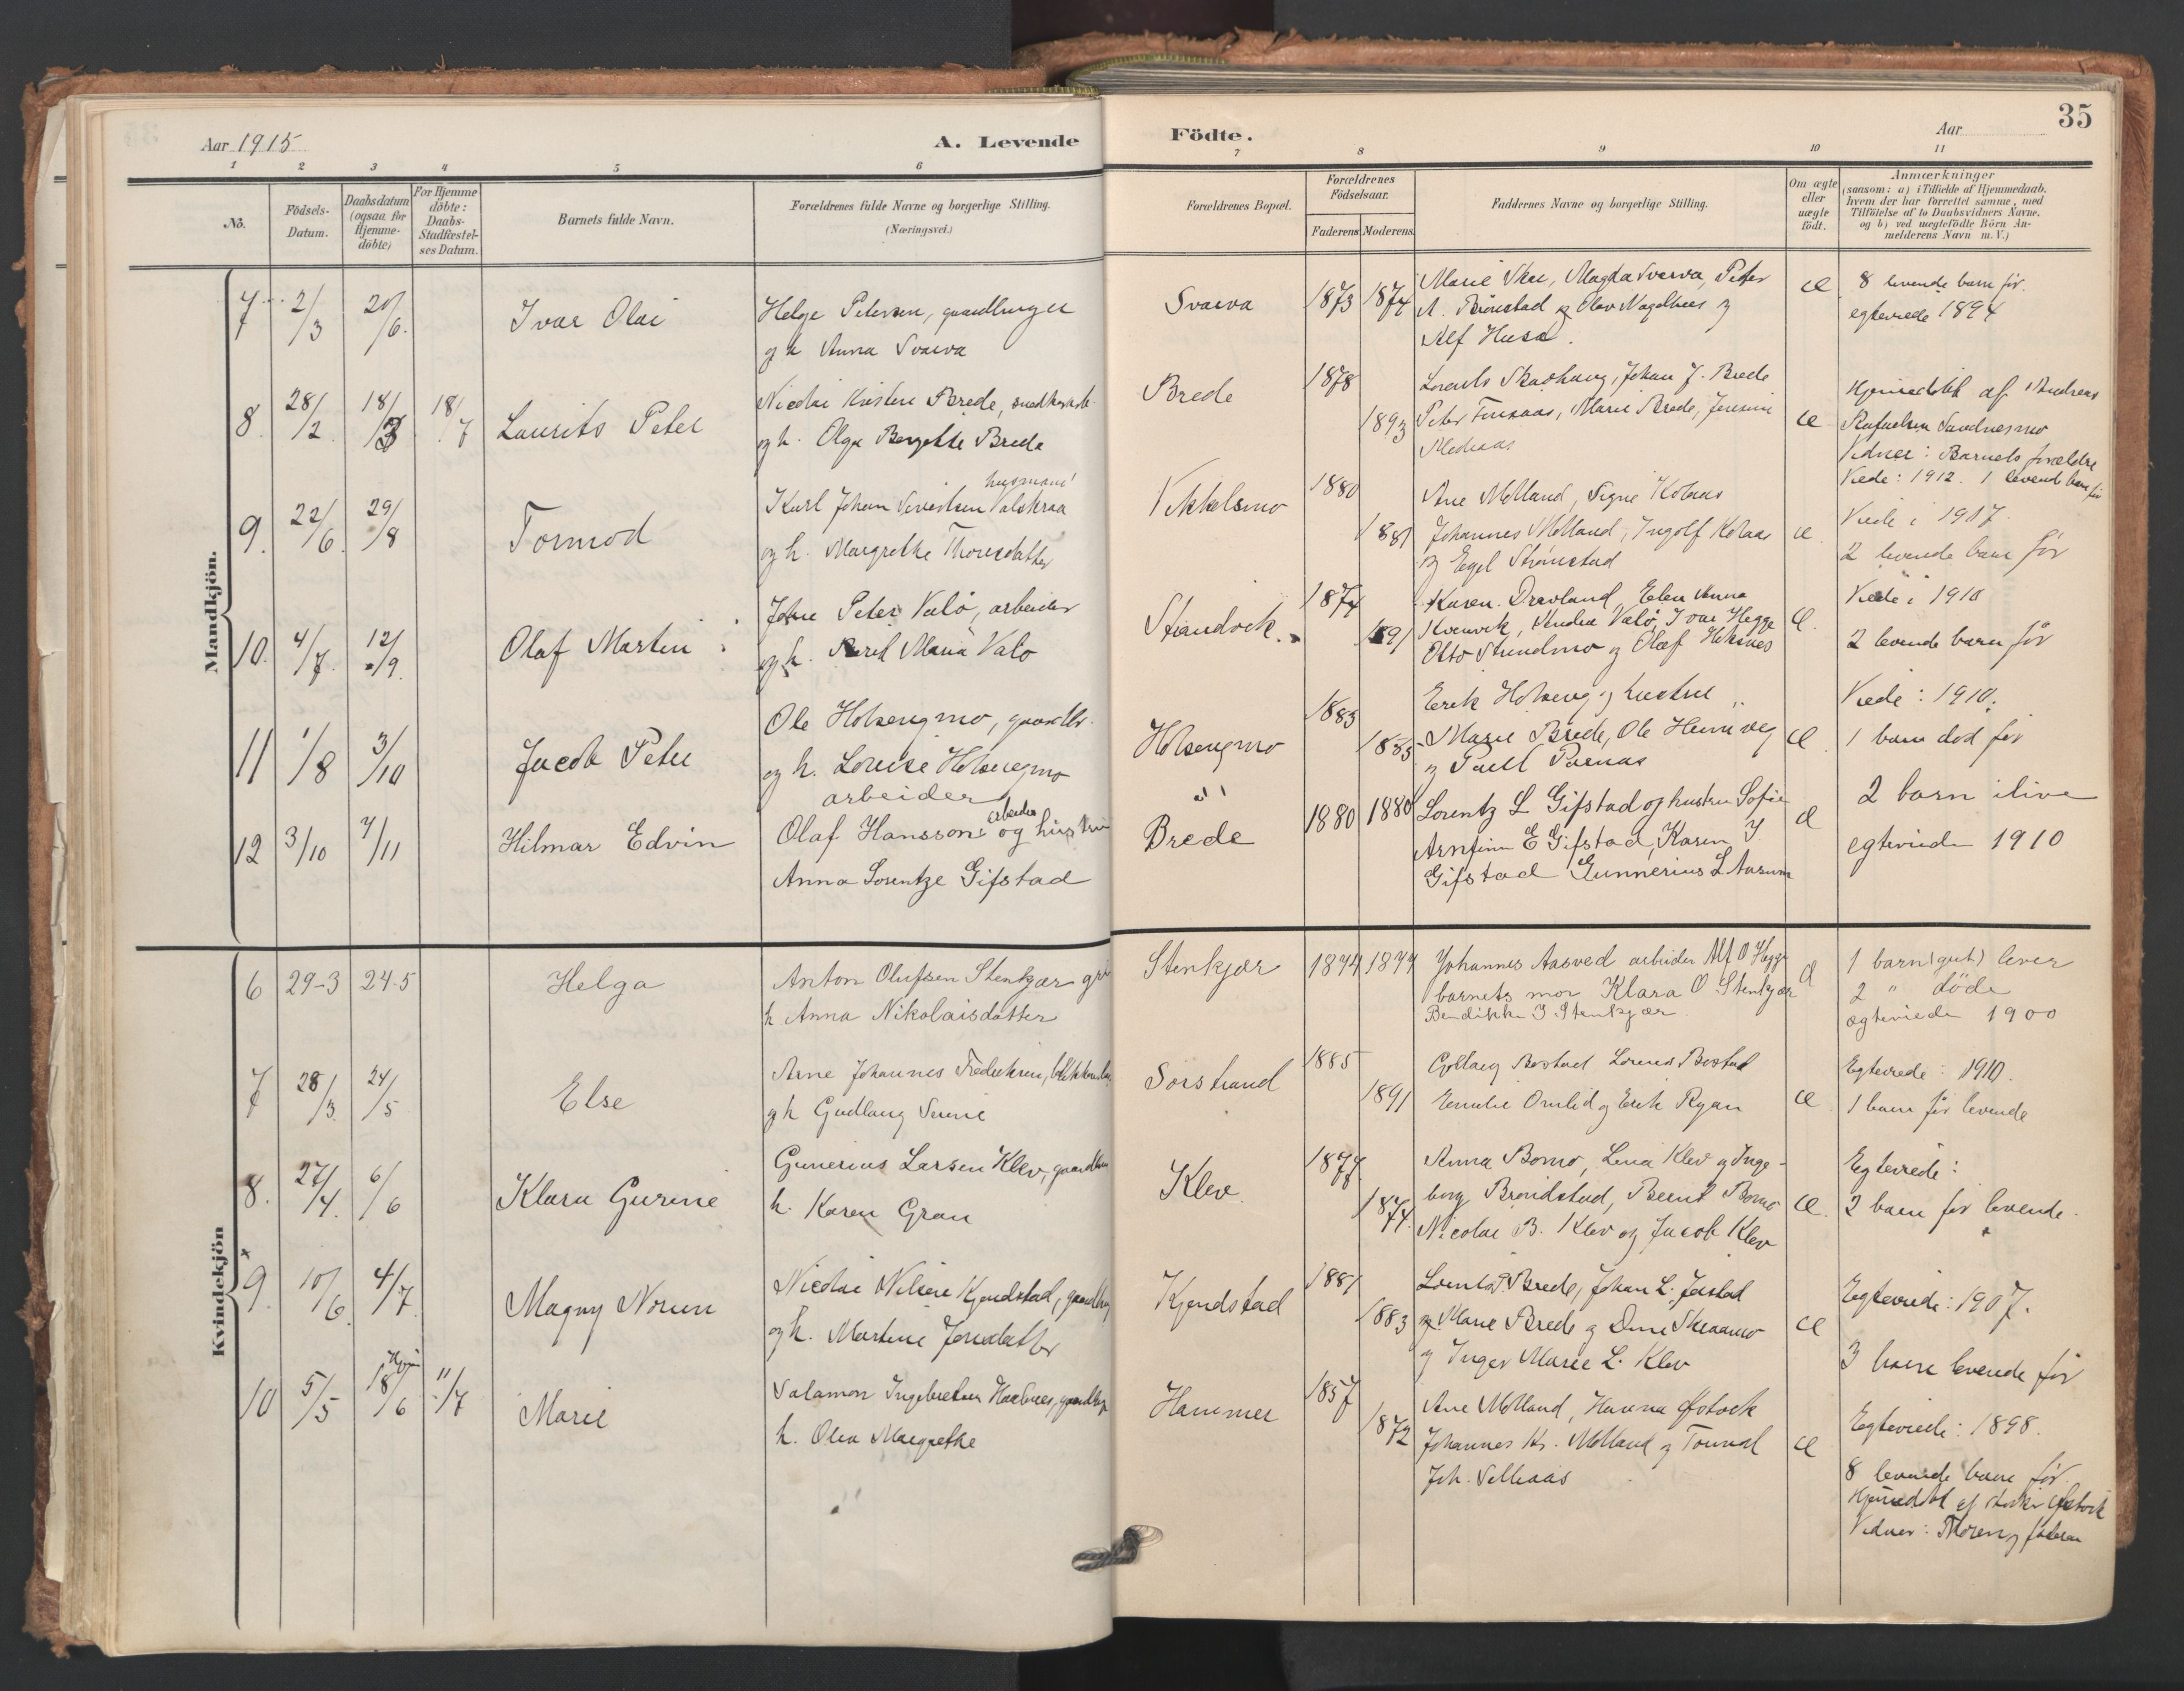 35
Aar 1915
A. Levende
Födte.
Aar
1 2 3 4 5 6 7 8 9 10 11
No.
Födsels-
Datum.
Daabsdatum
(ogsaa for
Hjemme-
döbte)
For Hjemme
döbte:
Daabs-
Stadfæstel-
ses Datum.
Barnets fulde Navn.
Forældrenes fulde Navne og borgerlige Stilling.
(Næringsvei.)
Forældrenes Bopæl.
Forældrenes
Födselsaar.
Faderens Moderens
Faddernes Navne og borgerlige Stilling.
Om ægte
eller
uægte
födt.
Anmærkninger
(saasom: a) i Tilfælde af Hjemmedaab.
hvem der har forrettet samme, med
Tilföielse af to Daabsvidners Navne.
og b) ved uægtefödte Börn An-
melderens Navn m. V.)
Mandkjön.
7 2/3 20/6. Ivar Olai
Helge Petersen, gaardbruger
og h Anna Svarva
Svarva 1873 1874
Marie Skei, Magda Svarva, Peter
A. Brønstad og Olav Vagelnes og
Alf Husa.
æ
8 levende barn før.
egteviede 1894
8. 28/2 18/3 18/7 Laurits Peter
Nicolai Kristen Brede,
og h. Olga Bergette Brede
Brede 1878 1893
Lorents Skavhaug, Johan J. Brede
Peter Finsaas, Marie Brede,
æ
Hjemedøbt af Andreas
Rafaelsen Sandnesmo
Vidner: Barnets forældre
Viede: 1912. 1 levende barn før
9. 22/6. 29/8 Tormod
husmand
Karl Johan Sivertsen Valskraa
og h. Margrethe Thoresdatter
1880 1881
Ane Molland, Signe Kolaas
Johannes Molland, Ingolf Kolaas
og Egil Strømstad
æ.
Viede i 1907.
2 levende barn før
10. 4/7. 12/9. Olaf Martin
Johne Peter Valø, arbeider
og h. Marit Maria Valø
Strandvik. 1874 1891
Karen Drevland, Elen Anna
Kvervik, Andrea Valø, Ivar Hegge
Otto Strindmo og Olaf Heknes
æ.
Viede i 1910
2 levende barn før
11 1/8 3/10 Jacob Peter
Ole Holsengmo, gaardbr.
og h. Louise Holsengmo
Holsengmo 1883 1885
Erik Holseng og hustru
Marie Brede, Ole Hemveg
og Paul Pornas
æ.
Viede: 1910.
1 barn død før
12 3/10 7/11 Hilmar Edvin
arbeider
Olaf Hansson arbeider og hustru
Anna Lorentze Gifstad
Brede 1880 1880
Lorentz L Gifstad og hustru Sofie
Arnfinn E Gifstad, Karen J
Gifstad Gunnerius L Aarum
æ
2 barn ilive
egteviede 1910
Kvindekjön
6 29-3 24-5 Helga
Anton Olufsen Stenkjær
h. Anna Nikolaisdatter
Stenkjær 1874 1874
Johannes Aasved arbeider Alf O Hegge
barnets mor Klara O Stenkjær
Bendikke J Stenkjær
æ
1 barn (gut) lever
2 " döde
egteviede 1900
7 28/3. 24/5 Else
Arne Johannes Fredriksen,
og h Gudlaug Serine
Sørstrand 1885 1891
Gyllaug Bostad Lorens Bostad
Emilie Omlid og Erik Ryan
æ
Egteviede: 1910.
1 barn før levende
8. 27/4. 6/6 Klara Gurine
Gunerius Larsen Klev, gaardbr
h. Karen Gran
Klev 1874 1874.
Anna Bomo, Lina Klev og Inge-
borg Brøndstad, Bernt Bomo
Nicolai B. Klev og Jacob Klev
æ.
Egteviede:
2 barn før levende.
9. 10/6. 4/7. Magny Norun
Nicolai Nilsen Kjendstad, gaardbrug
og h. Martine Jensdatter
Kjendstad 1881 1883
Lorents P. Brede, Johan L. Jørstad
og Marie Brede og Dina Skraamo
og Inger Marie L. Klev
æ
Egteviede: 1907.
3 barn levende før
10 5/5 Hjem 18/6 11/7 Marie
Salamon Ingebretsen Haabnes, gaardbrug
h. Olea Margrethe
Hammer 1857 1872
Ane Molland, Hanna Østvik
Johannes Kr. Molland og Tormod
Joh. Selliaas
æ
Egteviede: 1898.
8 levende barn før.
Hjemedøbt af Østvik
Vidner: Moren og faderen